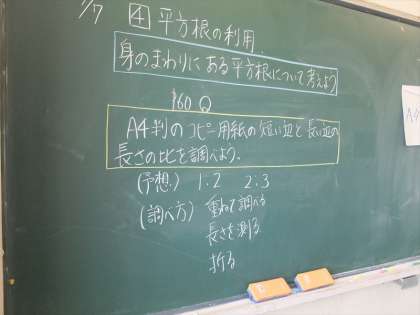 7/7 4 平方根の利用
身のまわりにある平方根について考えよう
P60 Q
A4判のコピー用紙の短い辺と長い辺の
長さの比を調べよう.
(予想) 1:2 2:3
(調べ方) 重ねて調べる
長さを測る
折る
A4